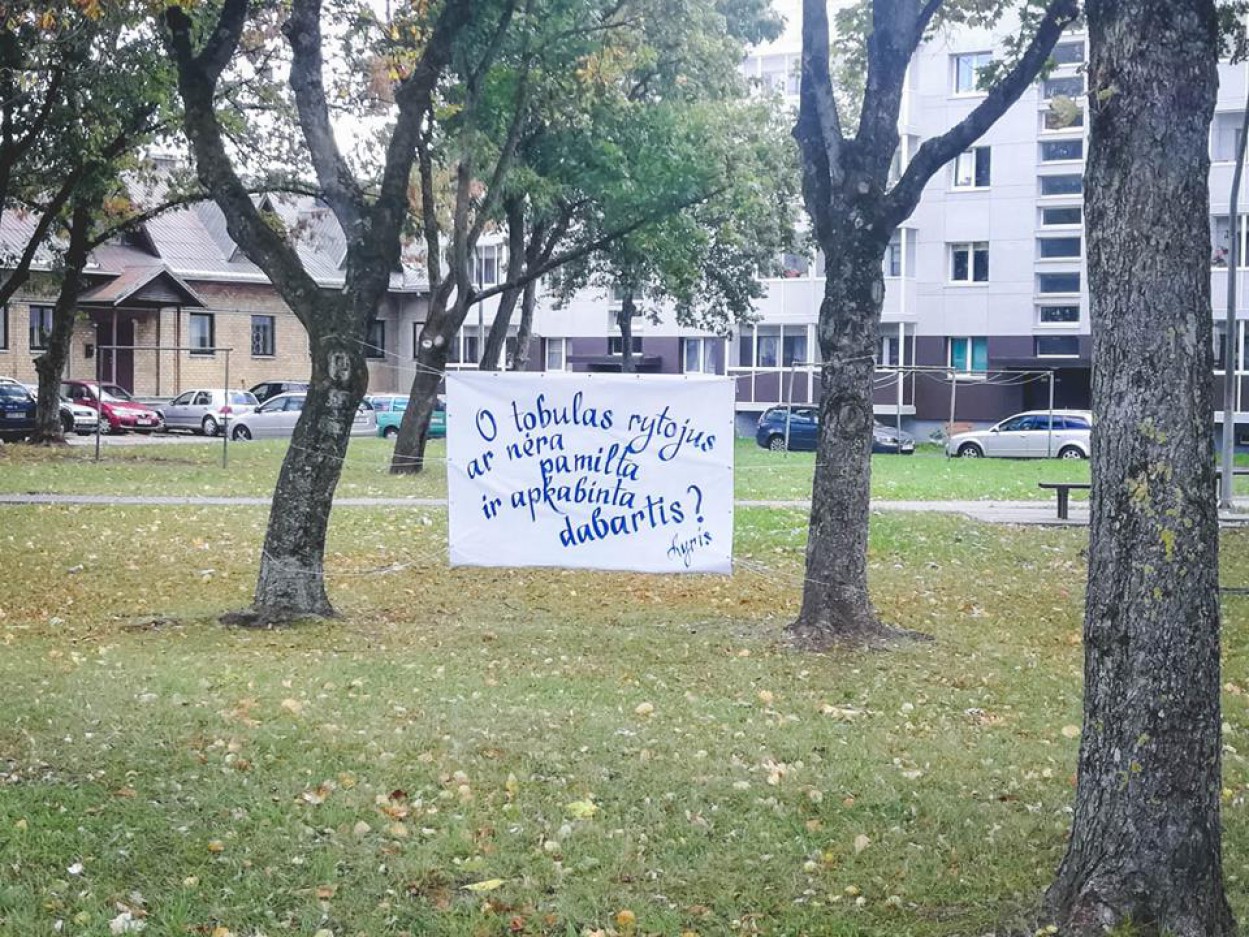 O tobulas rytojus
ar nėra
pamilta
ir apkabinta
dabartis?
Lyris